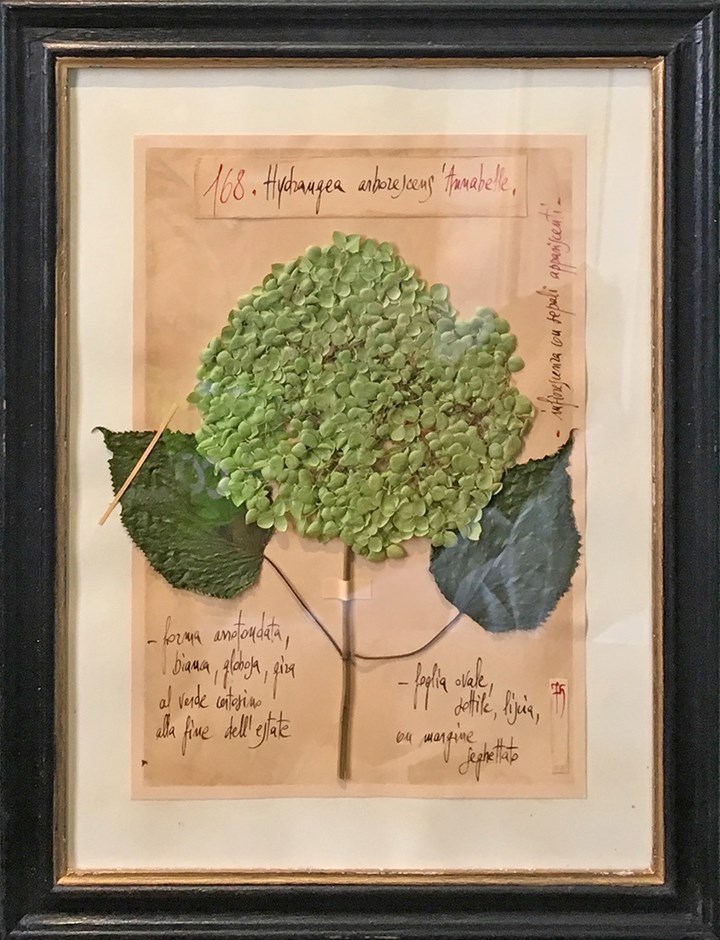 168. Hydrangea arborescens 'Annabelle,
- infiorescenza con sepali appariscenti -
- forma arrotondata,
bianca, globosa, gira
al verde certosino
alla fine dell'estate
- foglia ovale,
sottile, liscia,
con margine
seghettato
75